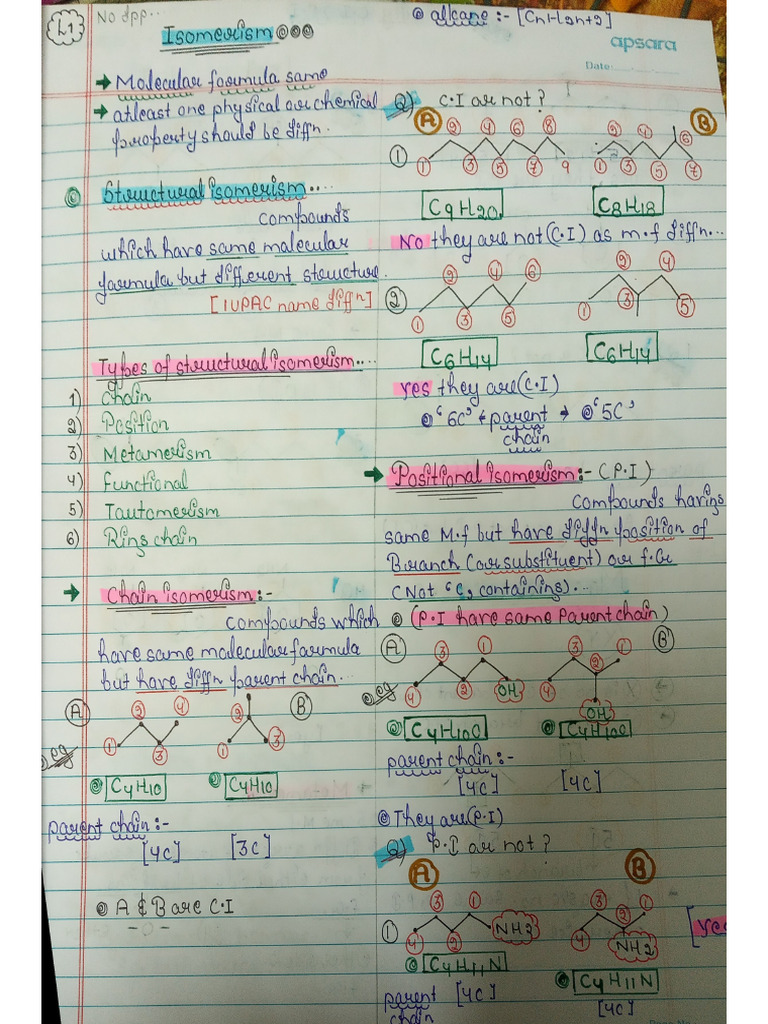 L.1
No dpp...
Isomerism
→ Molecular formula same
→ atleast one physical or chemical
property should be diffn.
Structural isomerism....
compounds
which have same molecular
formula but different structure.
[IUPAC name diffn]
Types of structural isomerism....
1) Chain
2) Position
3) Metamerism
4) Functional
5) Tautomerism
6) Ring chain
→ Chain isomerism:-
compounds which
have same molecular formula
but have diffn parent chain...
eg
A
B
1 2 3 4
1 2 3
C4H10
C4H10
parent chain:-
[4C]
[3C]
A & B are C.I
alkane :- [CnH2n+2]
apsara
Date:
Q) C.I or not?
A
B
1
1 2 3 4 5 6 7 8 9
1 2 3 4 5 6 7
C9H20
C8H18
No they are not (C.I) as m.f diffn...
2
1 2 3 4 5 6
1 2 3 4 5
C6H14
C6H14
yes they are (C.I)
'6C' ← parent → '5C'
chain
→ Positional isomerism:- (P.I)
compounds having
same M.f but have diffn position of
Branch (or substituent) or f.Gr
(Not 'C, containing)...
(P.I have same Parent chain)
eg
A
B
4 3 2 1 OH
4 3 2 1
OH
C4H10O
C4H10O
parent chain:-
[4C]
[4C]
They are (P.I)
Q) P.I or not?
A
B
1
4 3 2 1 NH2
4 3 2 1
NH2
[yes
C4H11N
C4H11N
parent
[4C]
[4C]
chain